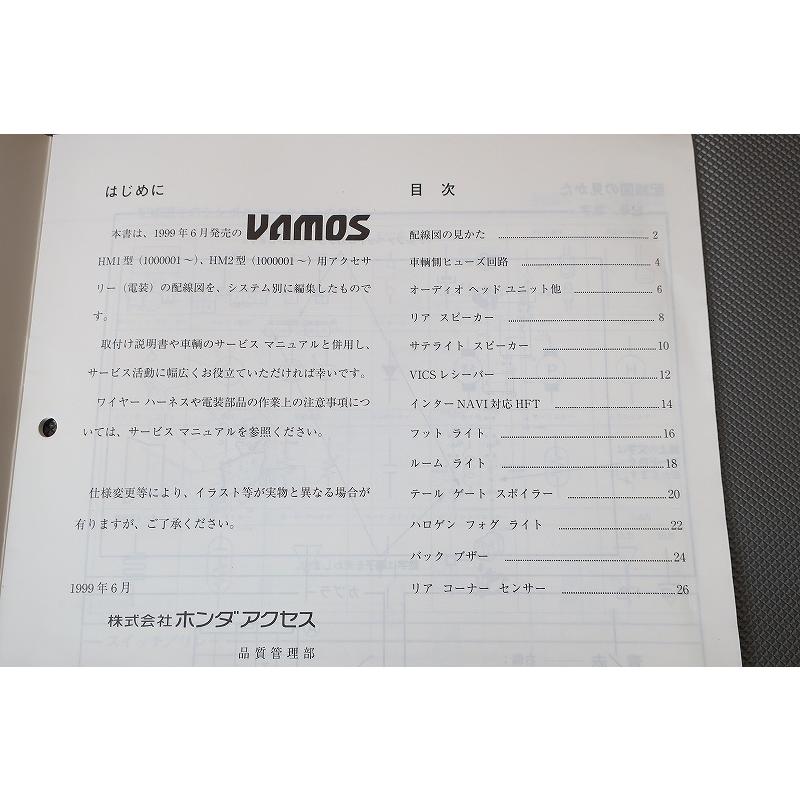 はじめに
本書は、1999年6月発売の VAMOS
HM1型（1000001～）、HM2型（1000001～）用アクセサ
リー（電装）の配線図を、システム別に編集したもので
す。
取付け説明書や車輌のサービス マニュアルと併用し、
サービス活動に幅広くお役立ていただければ幸いです。
ワイヤー ハーネスや電装部品の作業上の注意事項につ
いては、サービス マニュアルを参照ください。
仕様変更等により、イラスト等が実物と異なる場合が
有りますが、ご了承ください。
1999年6月
株式会社ホンダアクセス
品質管理部
目 次
配線図の見かた 2
車輌側ヒューズ回路 4
オーディオ ヘッド ユニット他 6
リア スピーカー 8
サテライト スピーカー 10
VICSレシーバー 12
インターNAVI対応HFT 14
フット ライト 16
ルーム ライト 18
テール ゲート スポイラー 20
ハロゲン フォグ ライト 22
バック ブザー 24
リア コーナー センサー 26